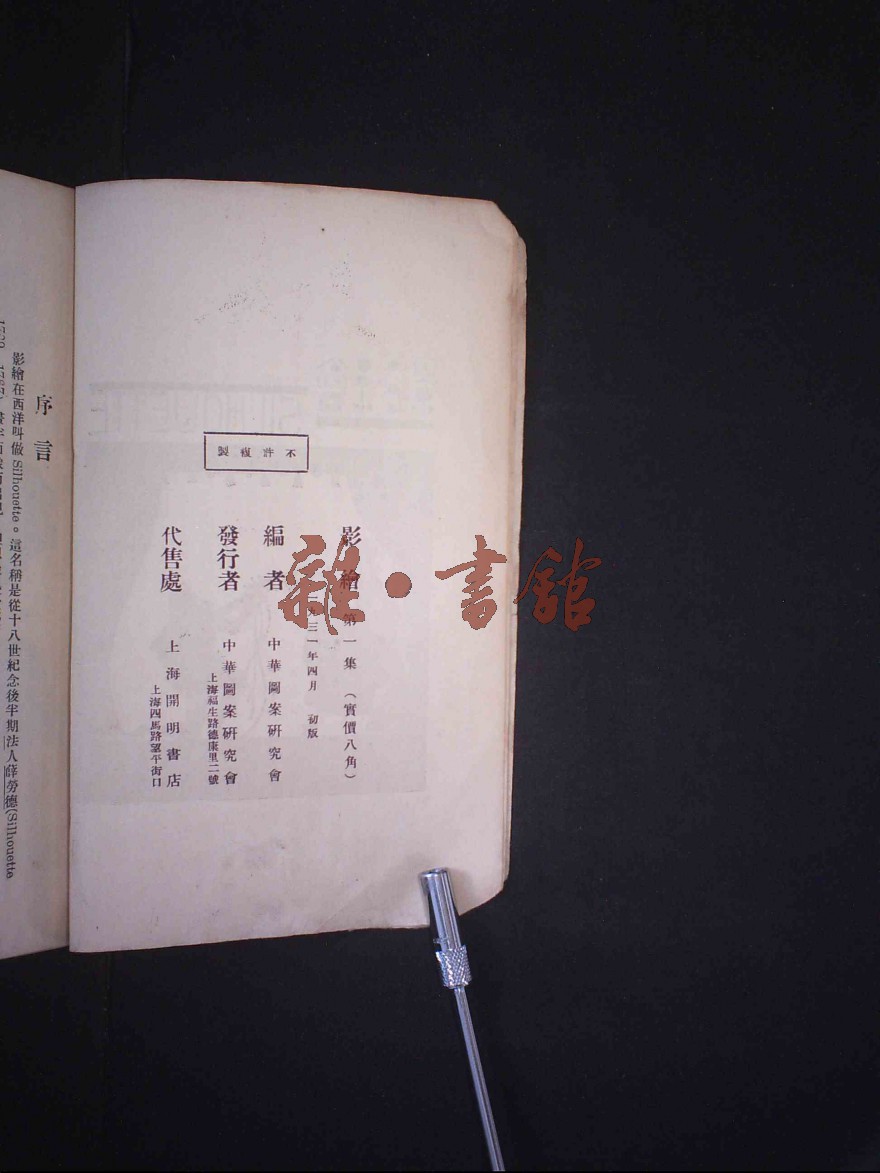 不許複製
影繪 第一集 (實價八角)
九三一年四月 初版
編者 中華圖案研究會
發行者 中華圖案研究會
上海福生路德康里二號
代售處 上海開明書店
上海四馬路望平街口
序言
影繪在西洋叫做Silhouette。這名稱是從十八世紀念後半期法人薛勞德(Silhouette
雜·書館